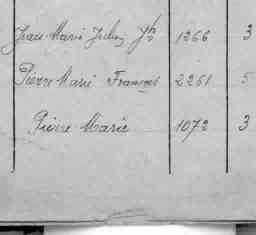 Jean Marie Julien Jh 1266 3
Pierre Marie François 2251 5
Pierre Marie 1072 3